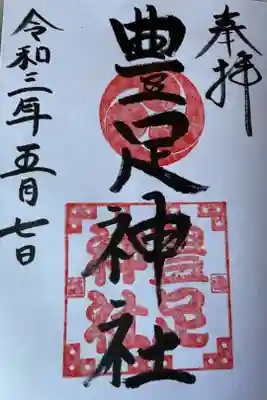 奉拝
豊足神社
豊足
神社
令和三年五月七日